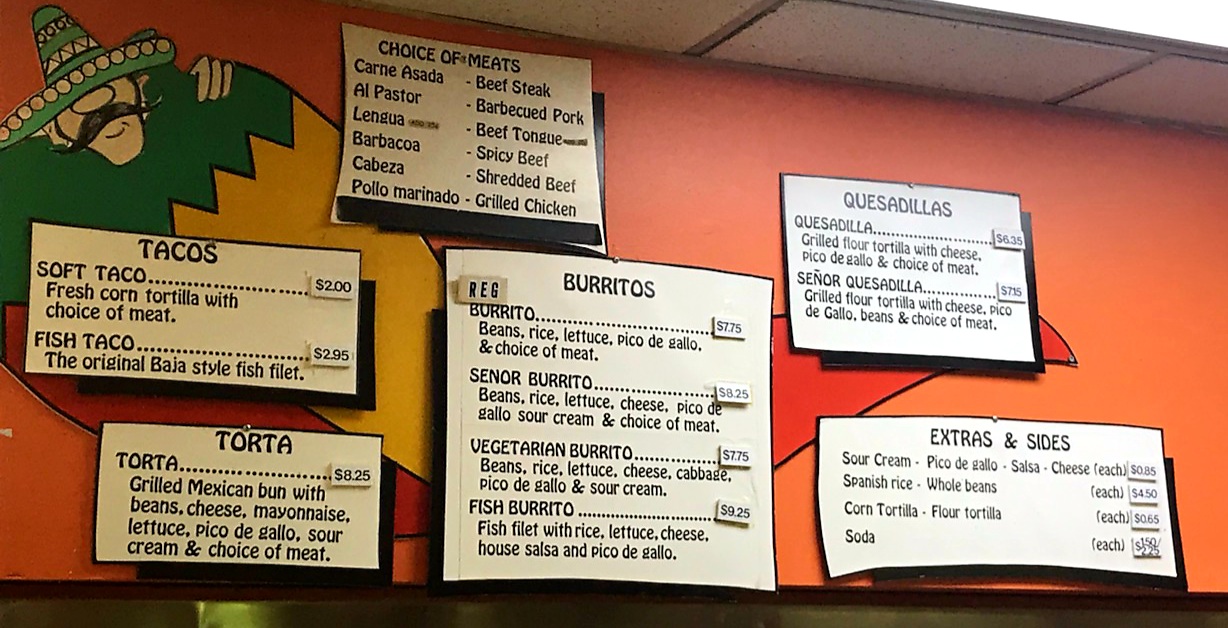 CHOICE OF MEATS
Carne Asada - Beef Steak
Al Pastor - Barbecued Pork
Lengua - Beef Tongue
Barbacoa - Spicy Beef
Cabeza - Shredded Beef
Pollo marinado - Grilled Chicken
TACOS
SOFT TACO........................ $2.00
Fresh corn tortilla with
choice of meat.
FISH TACO........................ $2.95
The original Baja style fish filet.
TORTA
TORTA........................ $8.25
Grilled Mexican bun with
beans, cheese, mayonnaise,
lettuce, pico de gallo, sour
cream & choice of meat.
BURRITOS
REG
BURRITO........................ $7.75
Beans, rice, lettuce, pico de gallo,
& choice of meat.
SENOR BURRITO........................ $8.25
Beans, rice, lettuce, cheese, pico de
gallo sour cream & choice of meat.
VEGETARIAN BURRITO................ $7.75
Beans, rice, lettuce, cheese, cabbage,
pico de gallo & sour cream.
FISH BURRITO ........................ $9.25
Fish filet with rice, lettuce, cheese,
house salsa and pico de gallo.
QUESADILLAS
QUESADILLA........................ $6.35
Grilled flour tortilla with cheese,
pico de gallo & choice of meat.
SEÑOR QUESADILLA................ $7.15
Grilled flour tortilla with cheese, pico
de Gallo, beans & choice of meat.
EXTRAS & SIDES
Sour Cream - Pico de gallo - Salsa - Cheese (each) $0.85
Spanish rice - Whole beans (each) $4.50
Corn Tortilla - Flour tortilla (each) $0.65
Soda (each)